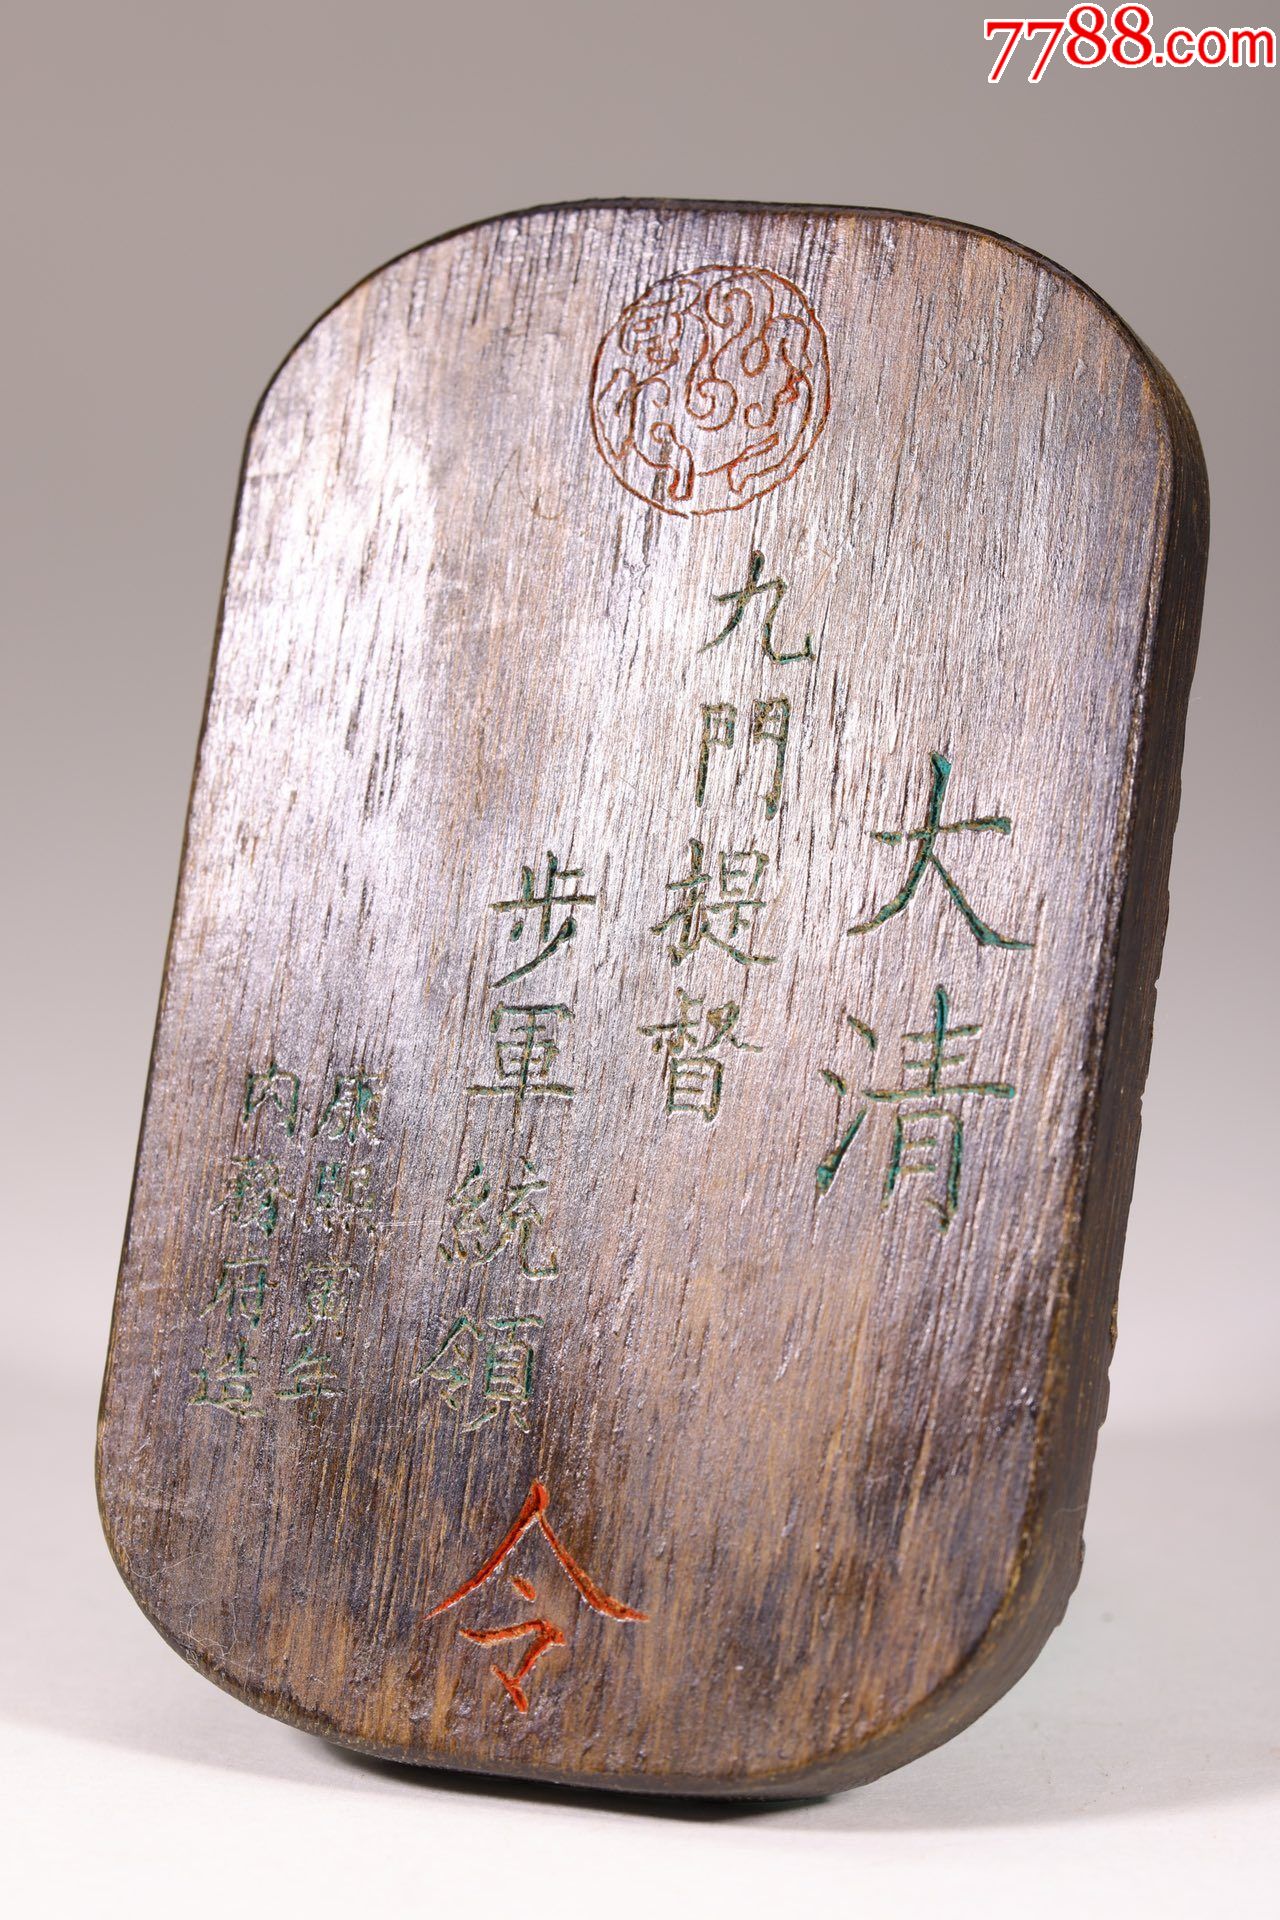 7788.com
大清
九門提督
步軍統領
令
康熙寅年
內務府造